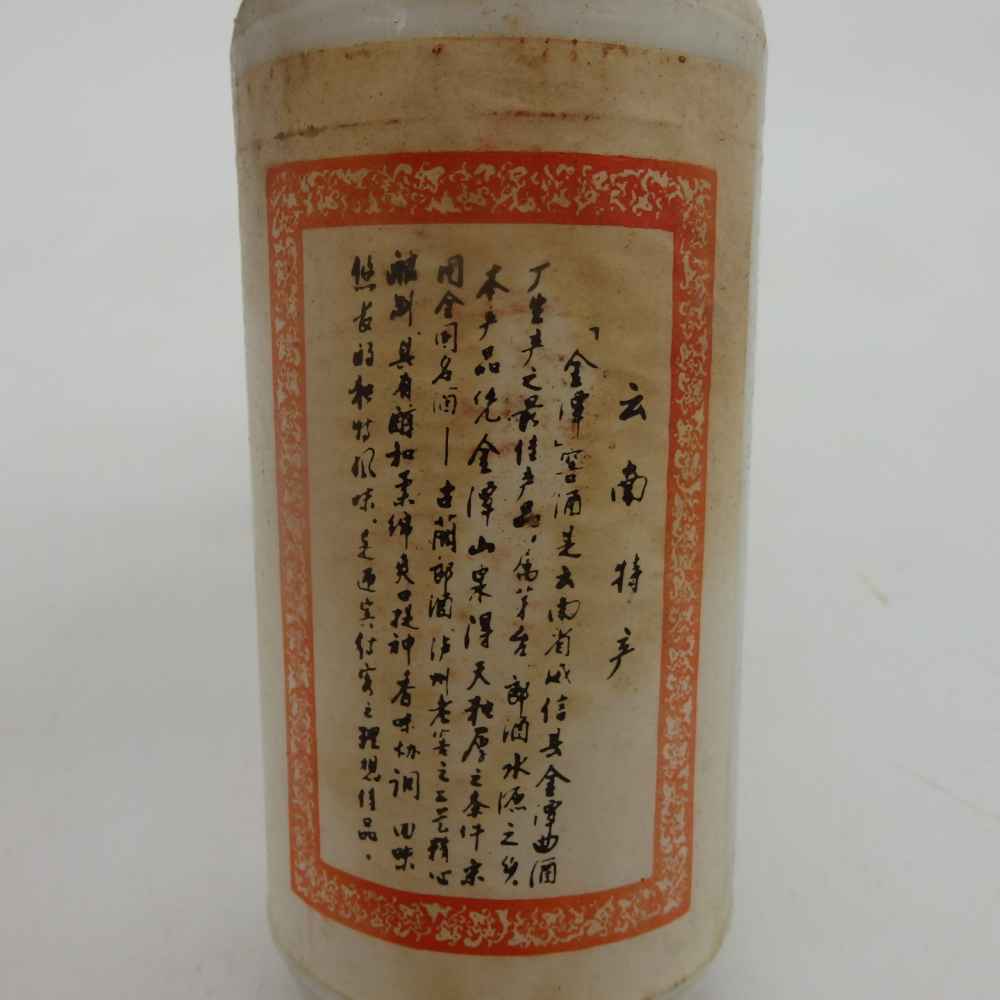 云南特产
「金潭」窖酒是云南省威信县金潭曲酒
厂生产之最佳产品,属茅台、郎酒水源之
本产品凭金潭山泉得天独厚之条件采
用全国名酒—古蔺郎酒、泸州老窖之工艺精心
酿制,具有醇和柔绵爽口提神香味协调回味
悠长的独特风味,是迎宾付客之理想佳品。